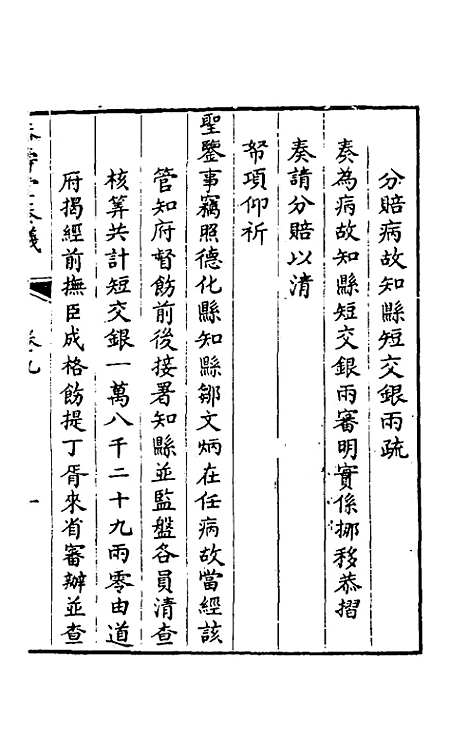 分賠病故知縣短交銀兩疏
奏為病故知縣短交銀兩審明實係挪移恭摺
奏請分賠以清
帑項仰祈
聖鑒事竊照德化縣知縣鄒文炳在任病故當經該
管知府督飭前後接署知縣並監盤各員清查
核算共計短交銀一萬八千二十九兩零由道
府揭經前撫臣成格飭提丁胥來省審辦並查
奏議
卷九
一